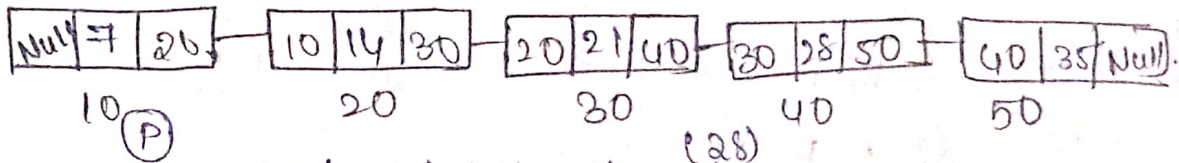 Null 7 20 10 14 30 20 21 40 30 28 50 40 35 Null
10 20 30 40 50
P (28)